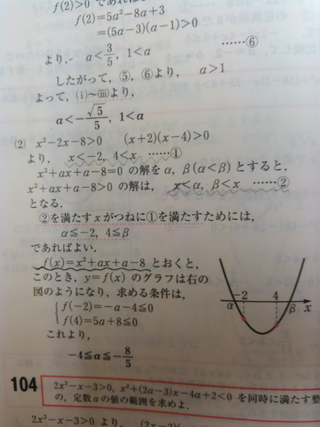 f(2)=5a²-8a+3
=(5a-3)(a-1)>0
より, a<3/5, 1<a ……⑥
したがって, ⑤, ⑥より, a>1
よって, (i)~(iii)より,
a<-√5/5, 1<a
(2) x²-2x-8>0 (x+2)(x-4)>0
より, x<-2, 4<x ……①
x²+ax+a-8=0 の解を α, β(α<β)とすると,
x²+ax+a-8>0 の解は, x<α, β<x ……②
となる.
②を満たす x がつねに①を満たすためには,
α≦-2, 4≦β
であればよい.
f(x)=x²+ax+a-8 とおくと,
このとき, y=f(x) のグラフは右の
図のようになり, 求める条件は,
f(-2)=-a-4≦0
f(4)=5a+8≦0
これより,
-4≦a≦-8/5
α -2 4 β x
104
2x²-x-3>0, x²+(2a-3)x-4a+2<0 を同時に満たす整
の, 定数 a の値の範囲を求めよ.
2x²-x-3>0 より,